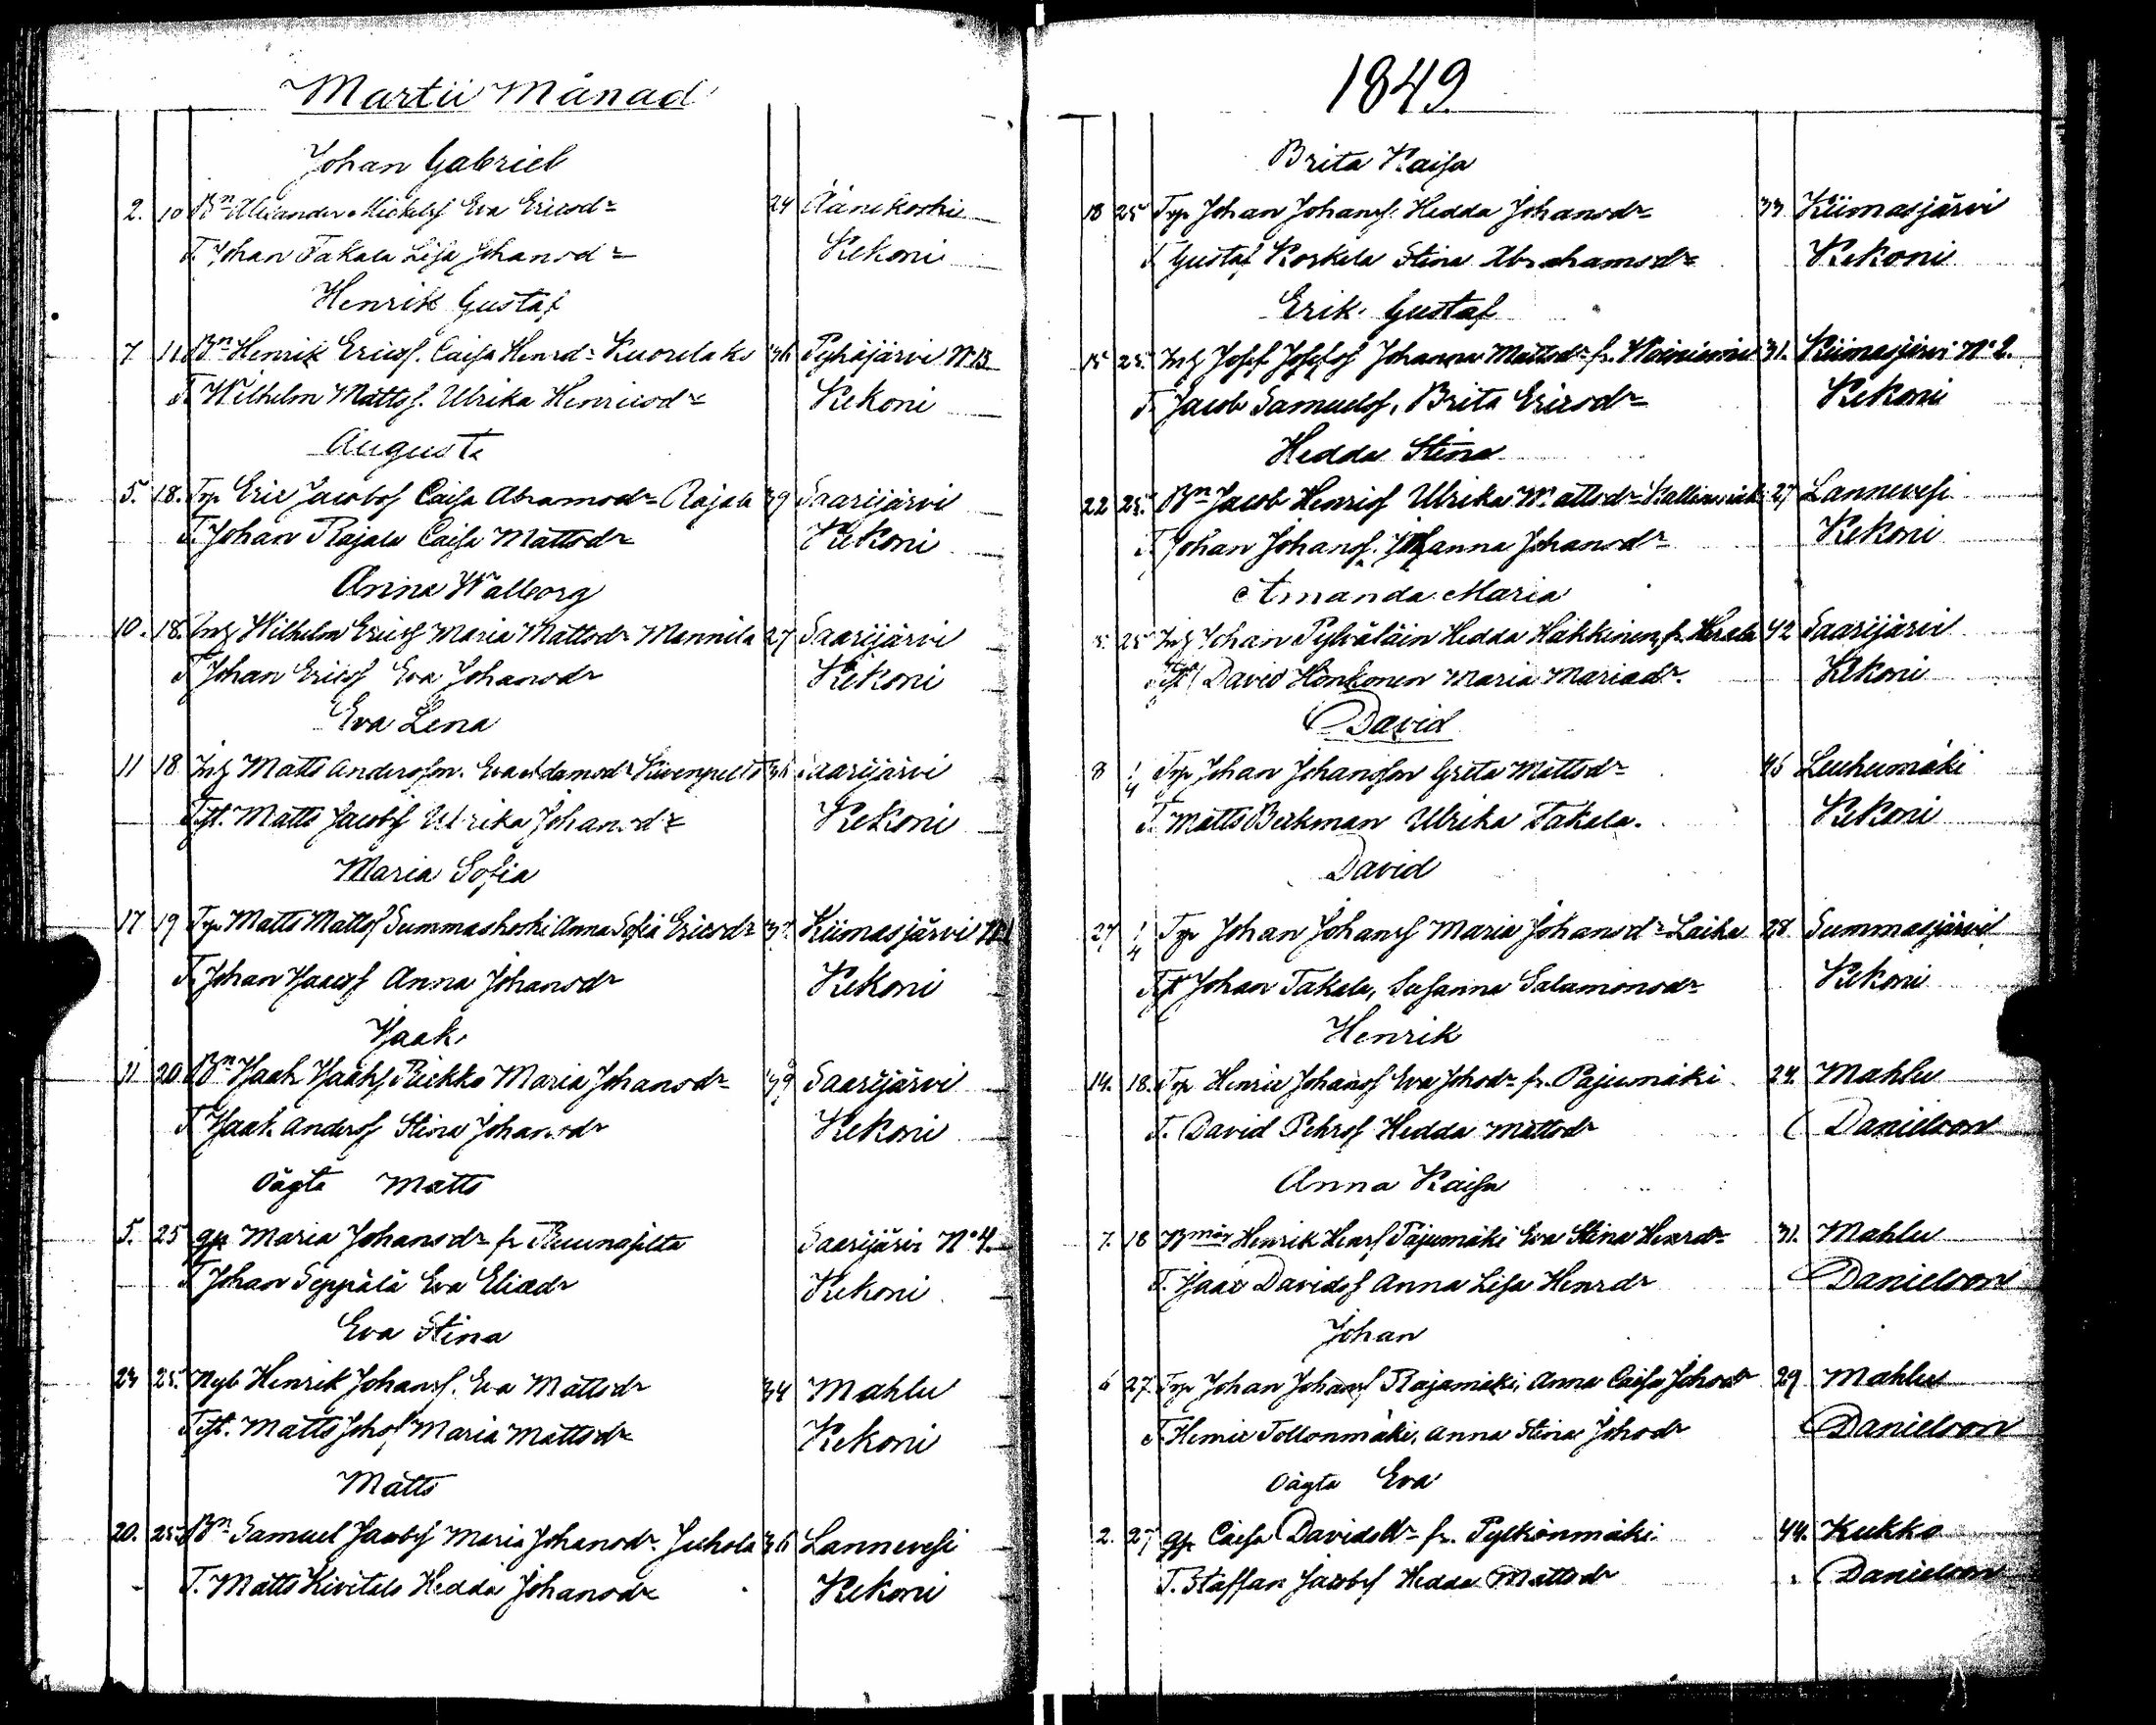 Martii Månad
Johan Gabriel
2. 10 Bn Alexander Mickelsf Eva Ericsdr 24 Äänekoski
T. Johan Takala Lisa Johansdr Kekoni
Henrik Gustaf
7 11 Bn Henrik Ericsf. Caisa Henrdr Kuorelaks 36 Pyhäjärvi No 13
T. Wilhelm Mattsf. Ulrika Henricsdr Kekoni
Augusta
5. 18. Trp Eric Jacobsf Caisa Abramsdr Rajala 39 Saarijärvi
T. Johan Rajala Caisa Mattsdr Kekoni
Anna Walborg
10. 18. Inh Wilhelm Ericsf Maria Mattsdr Mannila 27 Saarijärvi
T Johan Ericsf Eva Johansdr Kekoni
Eva Lena
11 18 Inh Matts Andersson. Eva Adamsdr Kivenpelto 36 Saarijärvi
Test. Matts Jacobsf Ulrika Johansdr Kekoni
Maria Sofia
17 19 Trp Matts Mattsf Summaskoski Anna Sofia Ericsdr Kiimasjärvi
T. Johan Isacsf Anna Johansdr Kekoni
Isak
11 20 Bn Isak Isaksf Riekko Maria Johansdr 39 Saarijärvi
T Isak Andersf Stina Johansdr Kekoni
Oägta Matts
5. 25 gp Maria Johansdr fr Ruunapelto Saarijärvi No 4.
T Johan Seppälä Eva Eliaedr Kekoni
Eva Stina
23 25. Nyb Henrik Johansf. Eva Mattsdr 34 Mahlu
Test. Matts Johsf Maria Mattsdr Kekoni
Matts
20. 25 Bn Samuel Jacobsf Maria Johansdr Juhola 36 Lannevesi
T. Matts Kivitalo Hedda Johansdr Kekoni
1849
Brita Kaisa
18 25 Trp Johan Johansf. Hedda Johansdr 33 Kiimasjärvi
T Gustaf Koskela Stina Abrahamsdr Kekoni
Erik Gustaf
15 25. Inh Josef Josefsf Johanna Mattsdr fr. 31. Kiimasjärvi No 2.
T. Jacob Samuelsf, Brita Ericsdr Kekoni
Hedda Stina
22 25. Bn Jacob Henrsf Ulrika Mattsdr 27 Lannevesi
T Johan Johansf. Johanna Johansdr Kekoni
Amanda Maria
5. 25 Inh Johan Pylväläin Hedda Häkkinen fr. 42 Saarijärvi
Test David Honkonen Maria Mariadr. Kekoni
David
8 1/4 Trp Johan Johansson Greta Mattsdr 46 Leuhumäki
T. Matts Berkman Ulrika Takala. Kekoni
David
27 1/4 Trp Johan Johansf Maria Johansdr Laiha 28 Summasjärvi
Tst Johan Takala, Susanna Salamonsdr Kekoni
Henrik
14. 18. Trp Henric Johansf Eva Johsdr fr. Pajumäki 24. Mahlu
T. David Pehrsf Hedda Mattsdr Danielson
Anna Kaisa
7. 18 Henrik Henrsf Pajumäki Eva Stina Henrdr 31. Mahlu
T. Isac Davidsf Anna Lisa Henrdr Danielson
Johan
6 27. Trp Johan Johansf Rajamäki, Anna Caisa Johsdr 29 Mahlu
T Henric Tollonmäki, Anna Stina Johsdr Danielson
Oägta Eva
2. 27 gp Caisa Davidsdr fr. Pylkönmäki 44. Kukko
T. Staffan Jacobsf Hedda Mattsdr Danielson